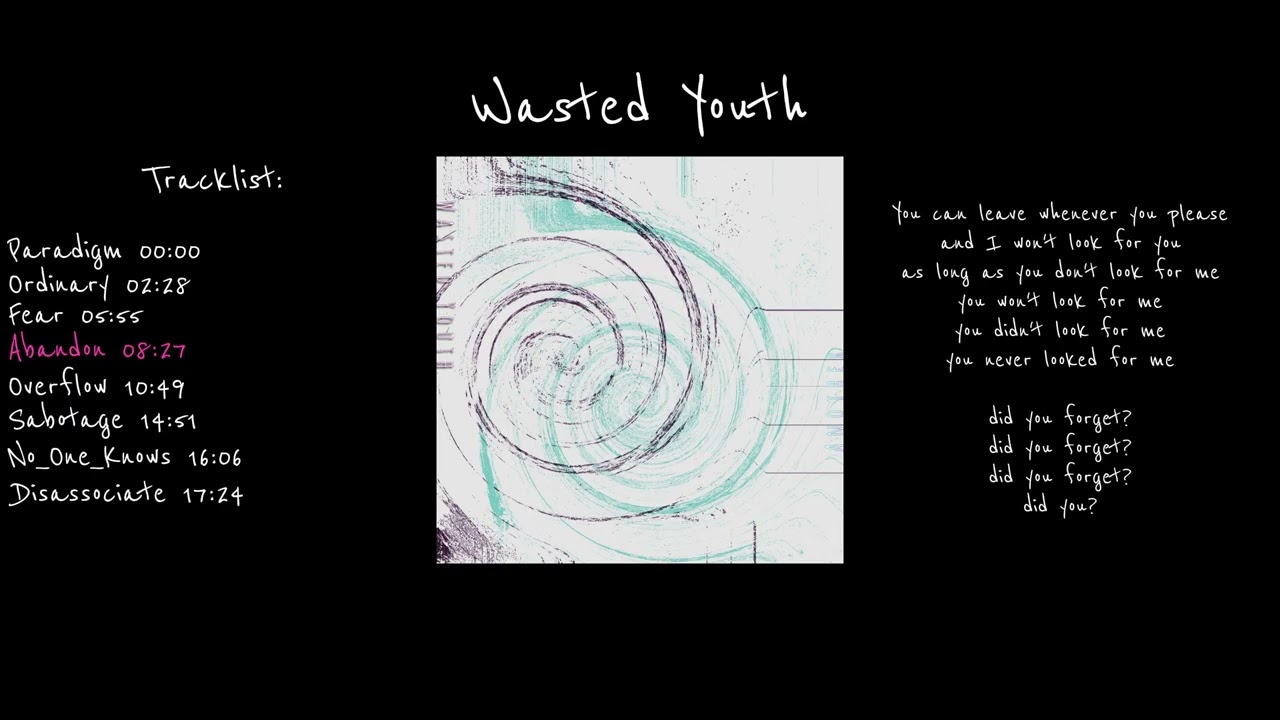 Wasted Youth
Tracklist:
Paradigm 00:00
Ordinary 02:28
Fear 05:55
Abandon 08:27
Overflow 10:49
Sabotage 14:51
No_One_Knows 16:06
Disassociate 17:24
You can leave whenever you please
and I won't look for you
as long as you don't look for me
you won't look for me
you didn't look for me
you never looked for me
did you forget?
did you forget?
did you forget?
did you?